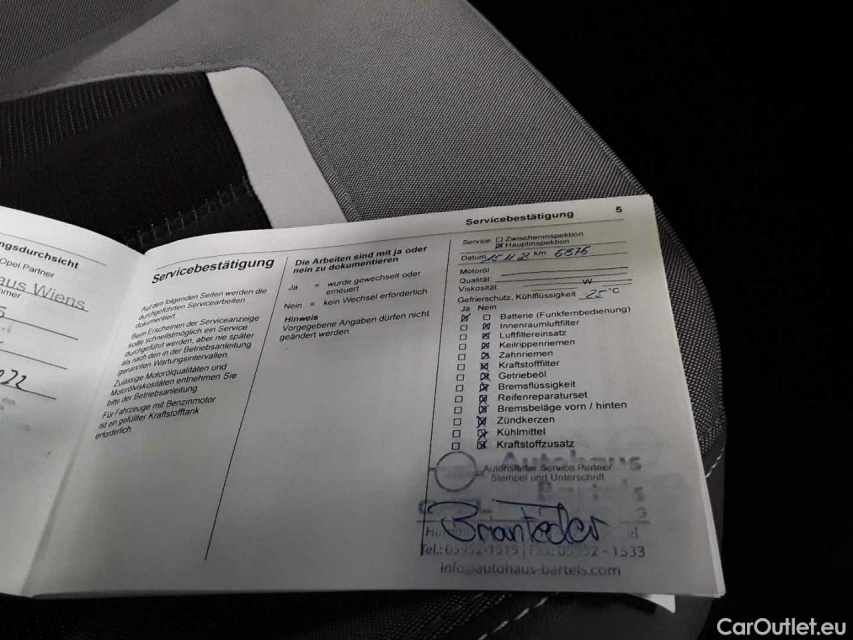 ngsdurchsicht
Opel Partner
aus Wiens
mmer
5
022
Servicebestätigung
Auf den folgenden Seiten werden die
durchgeführten Servicearbeiten
dokumentiert.
Beim Erscheinen der Serviceanzeige
sollte schnellstmöglich ein Service
durchgeführt werden, aber nie später
als nach den in der Betriebsanleitung
genannten Wartungsintervallen.
Zulässige Motorölqualitäten und
Motorölviskositäten entnehmen Sie
bitte der Betriebsanleitung
Für Fahrzeuge mit Benzinmotor
ist ein gefüllter Kraftstofftank
erforderlich.
Die Arbeiten sind mit ja oder
nein zu dokumentieren
Ja = wurde gewechselt oder
erneuert
Nein = kein Wechsel erforderlich
Hinweis
Vorgegebene Angaben dürfen nicht
geändert werden.
Servicebestätigung 5
Service: Zwischeninspektion
Hauptinspektion
Datum 15.11.22 km 6876
Motoröl
Qualität:
Viskosität: W
Gefrierschutz, Kühlflüssigkeit -25 °C
Ja Nein
Batterie (Funkfernbedienung)
Innenraumluftfilter
Luftfiltereinsatz
Keilrippenriemen
Zahnriemen
Kraftstofffilter
Getriebeöl
Bremsflüssigkeit
Reifenreparaturset
Bremsbeläge vorn / hinten
Zündkerzen
Kühlmittel
Kraftstoffzusatz
Autohaus
Autorisierter Service Partner
Stempel und Unterschrift
Bartels
Tel.: 05952-1515 | Fax: 05952 - 1533
info@autohaus-bartels.com
CarOutlet.eu